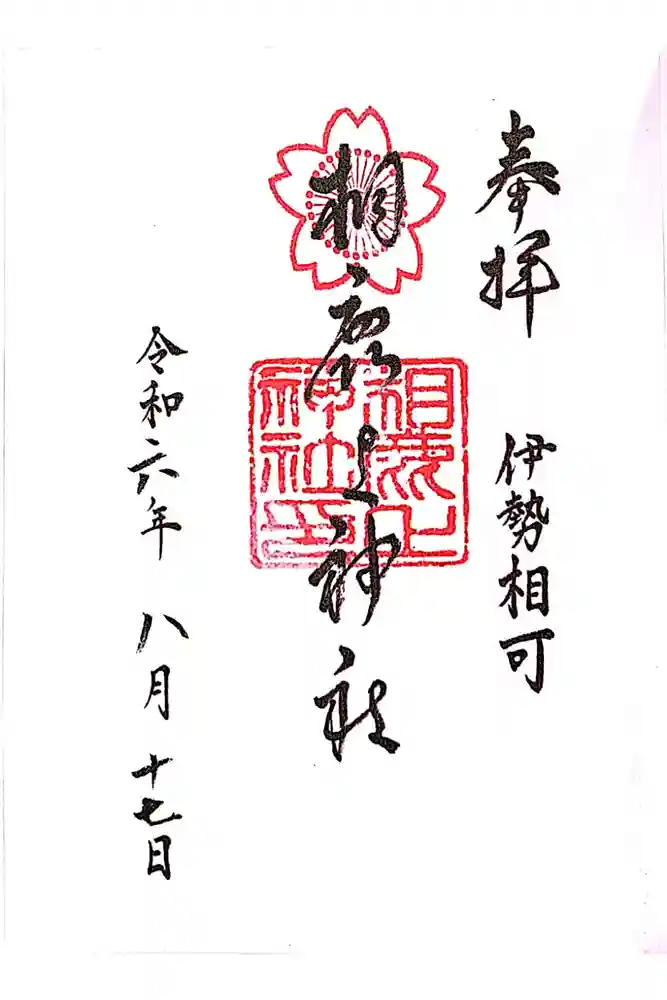 奉拝 伊勢相可
相鹿上神社
相鹿上
神社印
令和六年 八月 十七日